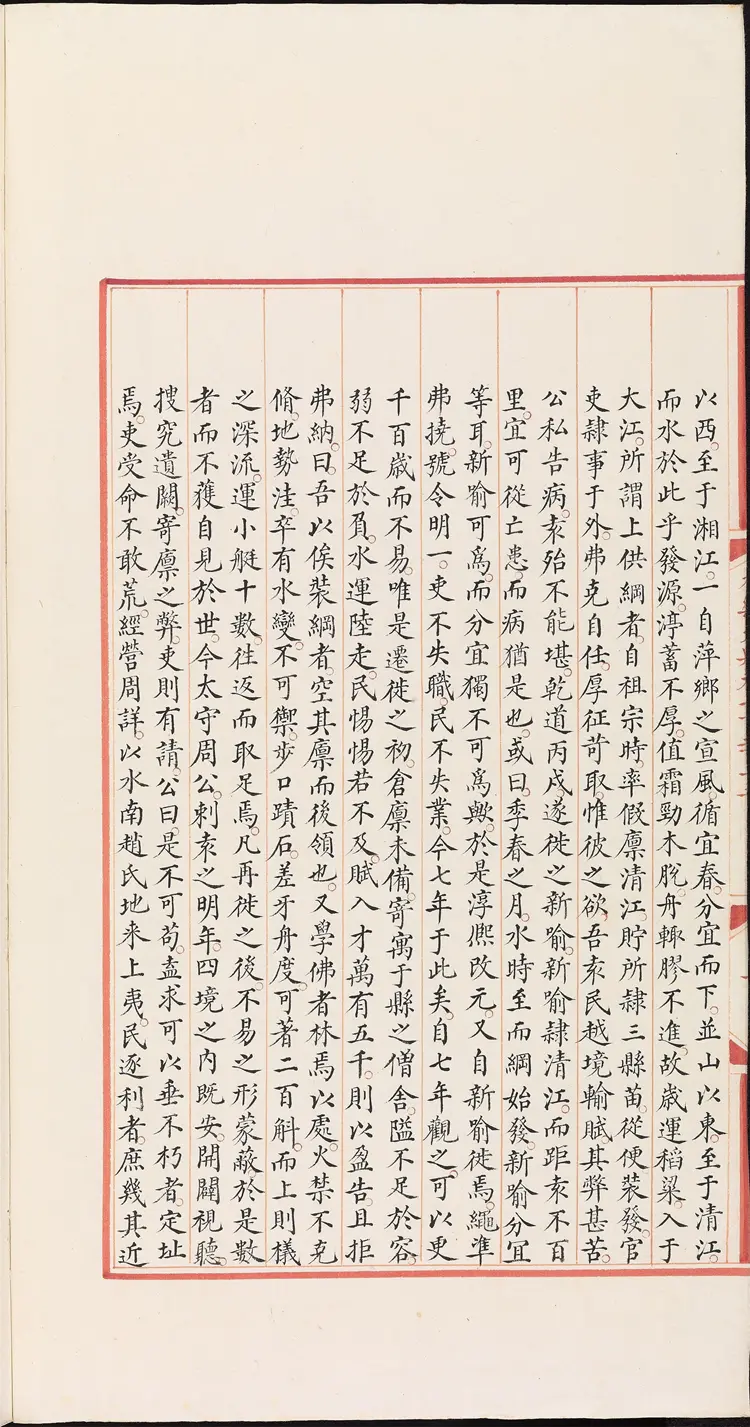 以西。至于湘江。一自萍鄉之宣風。循宜春。分宜而下。並山以東。至于清江。
而水於此乎發源。渟蓄不厚。值霜勁木脫。舟輒膠不進。故歲運稻粱。入于
大江。所謂上供綱者。自祖宗時。率假廩清江。貯所隸三縣苗。從便裝發。官
吏隸事于外。弗克自任。厚征苛取。惟彼之欲。吾袁民越境輸賦。其弊甚苦。
公私告病。袁殆不能堪。乾道丙戍。遂徙之新喻。新喻隸清江。而距袁不百
里。宜可從亡患。而病猶是也。或曰。季春之月。水時至而綱始發。新喻分宜
等耳。新喻可爲。而分宜獨不可爲歟。於是淳熈改元。又自新喻徙焉。繩準
弗撓。號令明一。吏不失職。民不失業。今七年于此矣。自七年觀之。可以更
千百歲而不易。唯是遷徙之初。倉廩未備。寄寓于縣之僧舍。隘不足於容。
弱不足於負。水運陸走。民惕惕若不及。賦入才萬有五千。則以盈告。且拒
弗納。曰。吾以俟裝綱者。空其廩而後領也。又學佛者林焉以處。火禁不克
脩。地勢洼。卒有水變。不可禦。步口蹟石。差牙舟度。可著二百斛。而上則檥
之深流。運小艇十數。徃返而取足焉。凡再徙之後。不易之形。蒙蔽於是數
者而不獲自見於世。今太守周公。刺袁之明年。四境之內既安。開闢視聽。
搜究遺闕。寄廩之弊。吏則有請。公曰。是不可苟。盍求可以垂不朽者。定址
焉。吏受命不敢荒。經營周詳。以水南趙氏地來上夷。民逐利者。庶幾其近